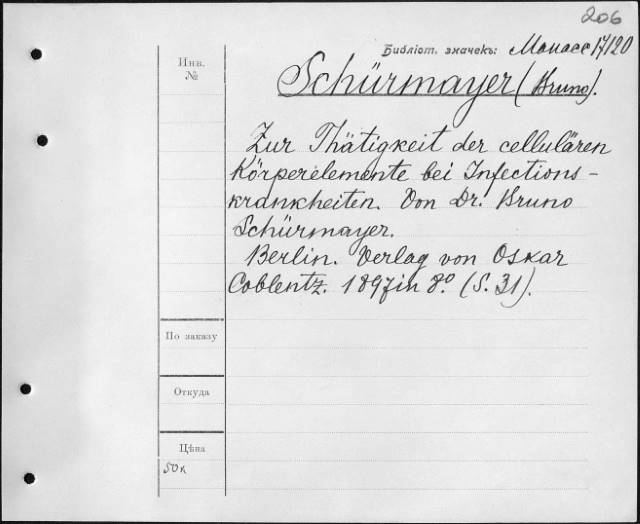 206
Библіот. значекъ: Манассе 17/120
Инв.
№
Schürmayer (Bruno).
Zur Thätigkeit der cellulären
Körperelemente bei Infections-
krankheiten. Von Dr. Bruno
Schürmayer.
Berlin. Verlag von Oskar
Coblentz. 1897 in 8º. (S. 31).
По заказу
Откуда
Цѣна
50 к